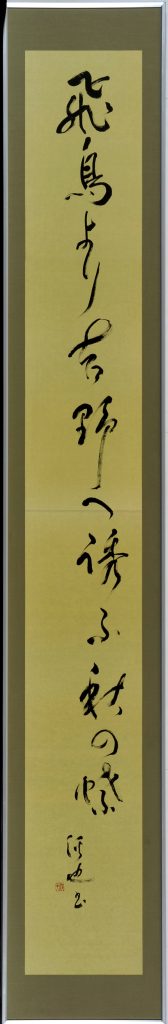 飛鳥より吉野へ誘ふ秋の蝶